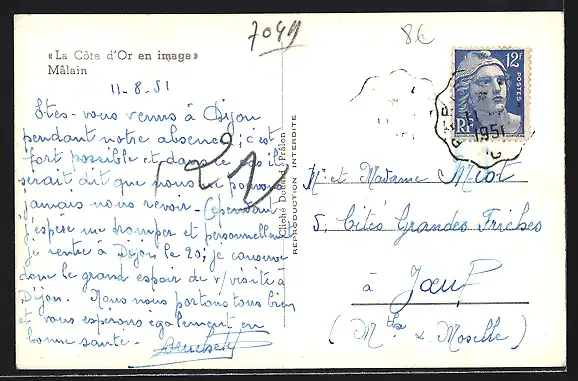 7049
86
« La Côte d'Or en image »
Mâlain
11-8-51
Etes-vous venus à Dijon
pendant notre absence, c'est
fort possible et dans ce cas il
serait dit que nous ne pouvons
jamais nous revoir - Cependant
j'espère me tromper et personnellement
je rentre à Dijon le 20; je conserve
donc le grand espoir de v/ visite à
Dijon. Nous nous portons tous bien
et vous espérons également en
bonne santé -
21
Cliché Douard Prâlon
REPRODUCTION INTERDITE
12F
POSTES
RF
1951
Mr et Madame Micot
5, Cités Grandes Friches
à Joeuf
(Mthe & Moselle)